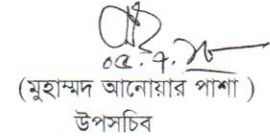 ০৫.৭.
(মুহাম্মদ আনোয়ার পাশা )
উপসচিব